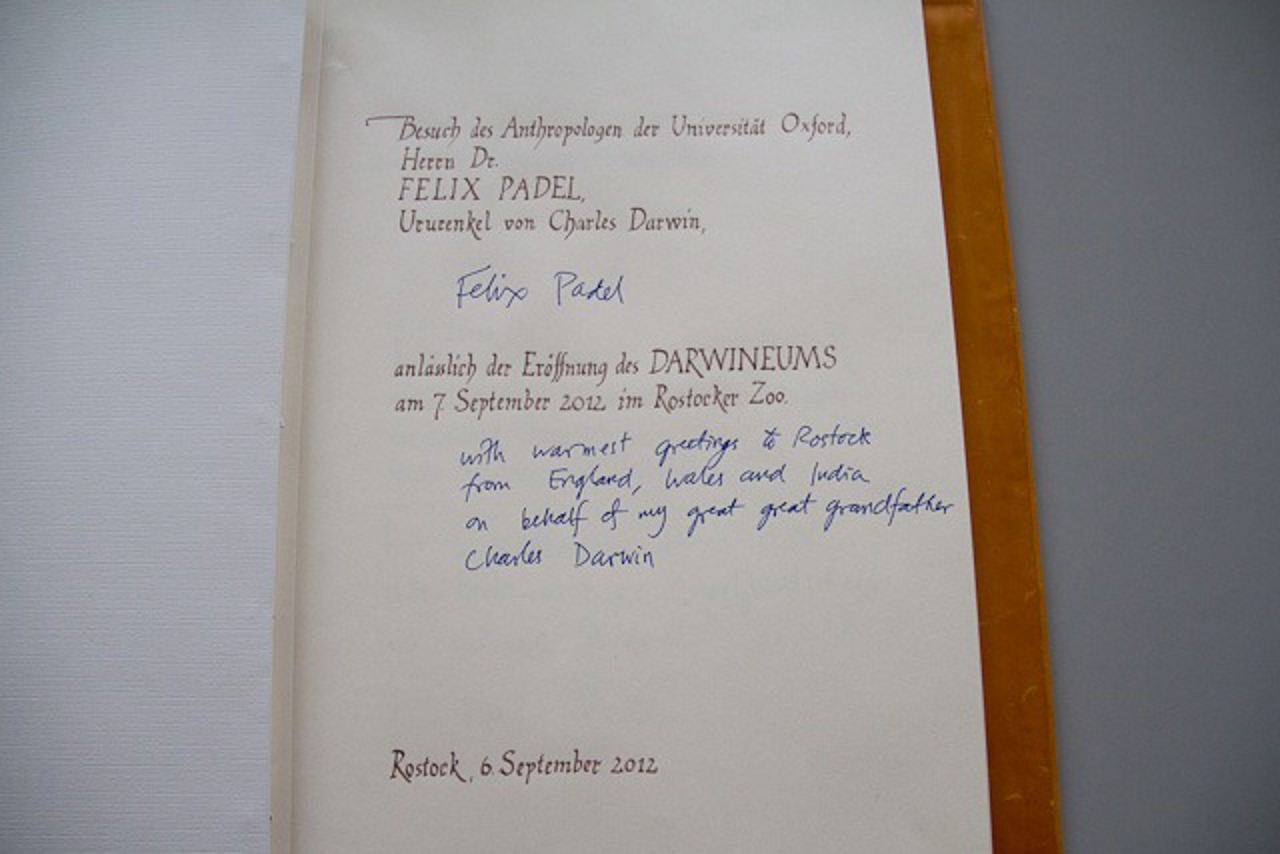 Besuch des Anthropologen der Universität Oxford,
Herrn Dr.
FELIX PADEL,
Ururenkel von Charles Darwin,
Felix Padel
anlässlich der Eröffnung des DARWINEUMS
am 7. September 2012 im Rostocker Zoo.
with warmest greetings to Rostock
from England, Wales and India
on behalf of my great great grandfather
Charles Darwin
Rostock, 6. September 2012